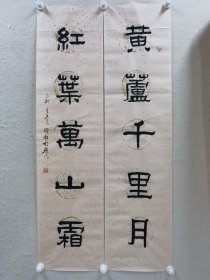 黄蘆千里月
紅葉萬山霜